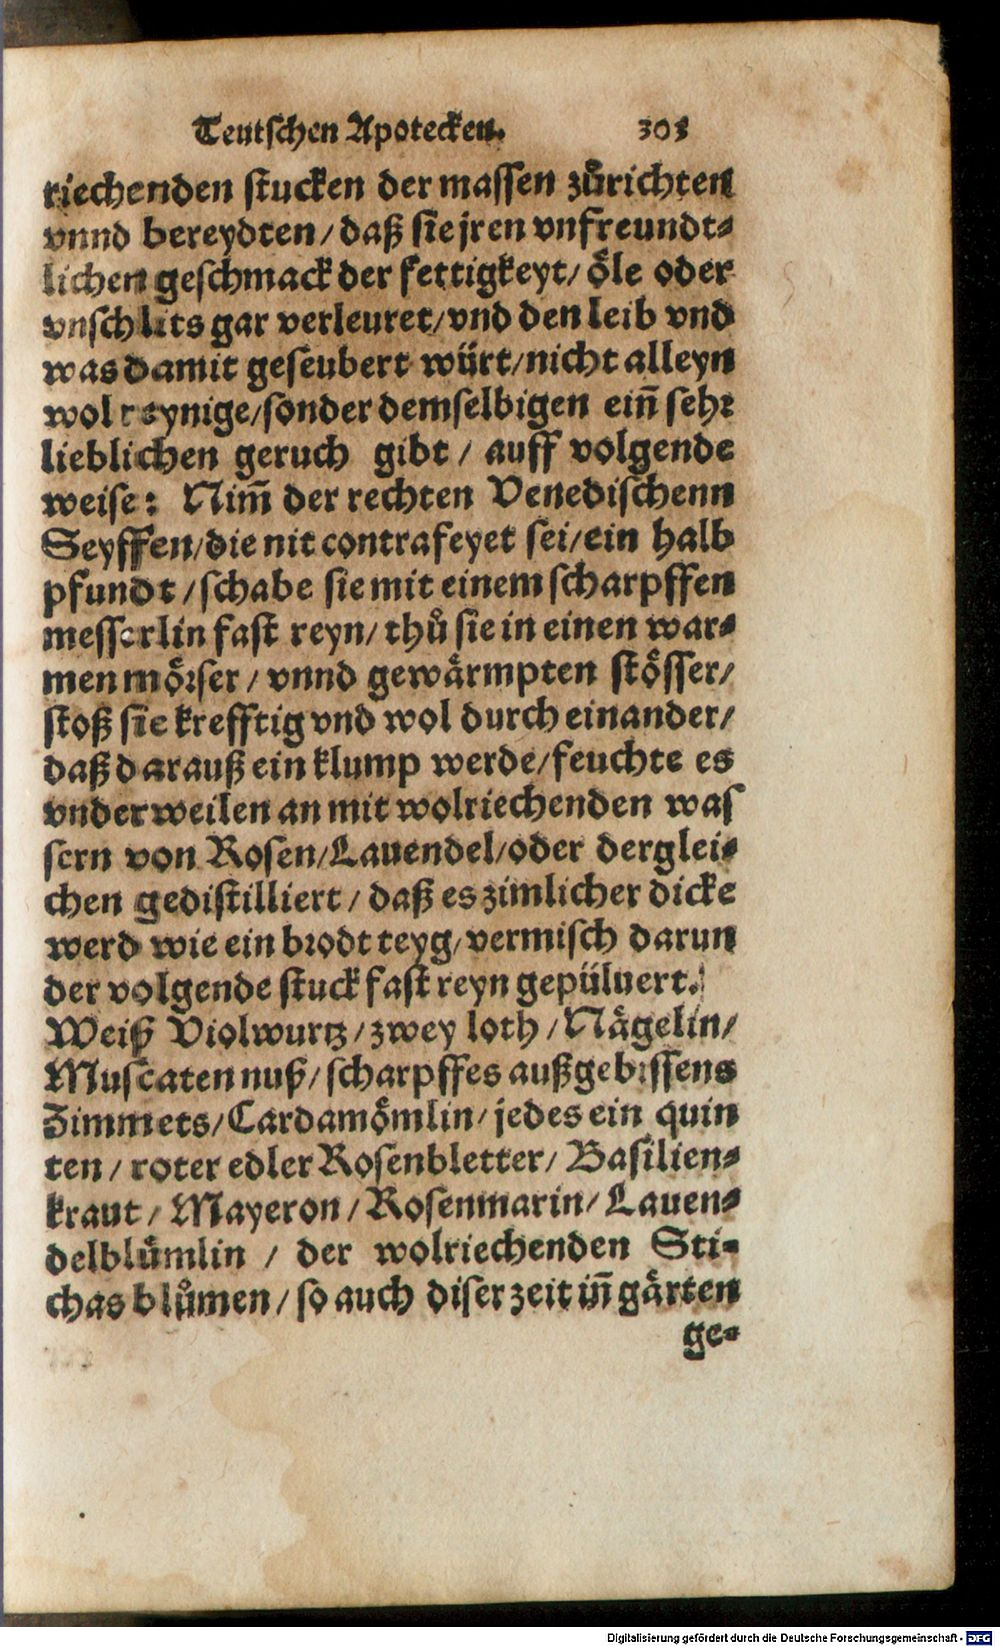 Teutschen Apotecken. 303
riechenden stucken der massen zůrichten
vnnd bereydten/ daß sie jren vnfreundt-
lichen geschmack der fettigkeyt/ öle oder
vnschlits gar verleuret/ vnd den leib vnd
was damit geseubert würt/ nicht alleyn
wol reynige/ sonder demselbigen eiñ sehr
lieblichen geruch gibt / auff volgende
weise: Nim̃ der rechten Venedischenn
Seyffen/ die nit contrafeyet sei/ ein halb
pfundt / schabe sie mit einem scharpffen
messerlin fast reyn/ thů sie in einen war-
men mörser / vnnd gewärmpten stösser/
stoß sie krefftig vnd wol durch einander/
daß darauß ein klump werde/ feuchte es
vnderweilen an mit wolriechenden was
sern von Rosen/ Lauendel/ oder derglei-
chen gedistilliert / daß es zimlicher dicke
werd wie ein brodt teyg/ vermisch darun
der volgende stuck fast reyn gepüluert.
Weiß Violwurtz / zwey loth / Nägelin/
Muscaten nuß/ scharpffes außgebissens
Zimmets/ Cardamömlin/ jedes ein quin
ten / roter edler Rosenbletter/ Basilien-
kraut / Mayeron / Rosenmarin/ Lauen-
delblůmlin / der wolriechenden Sti-
chas blůmen / so auch diser zeit iñ gärten
ge-
Digitalisierung gefördert durch die Deutsche Forschungsgemeinschaft - DFG